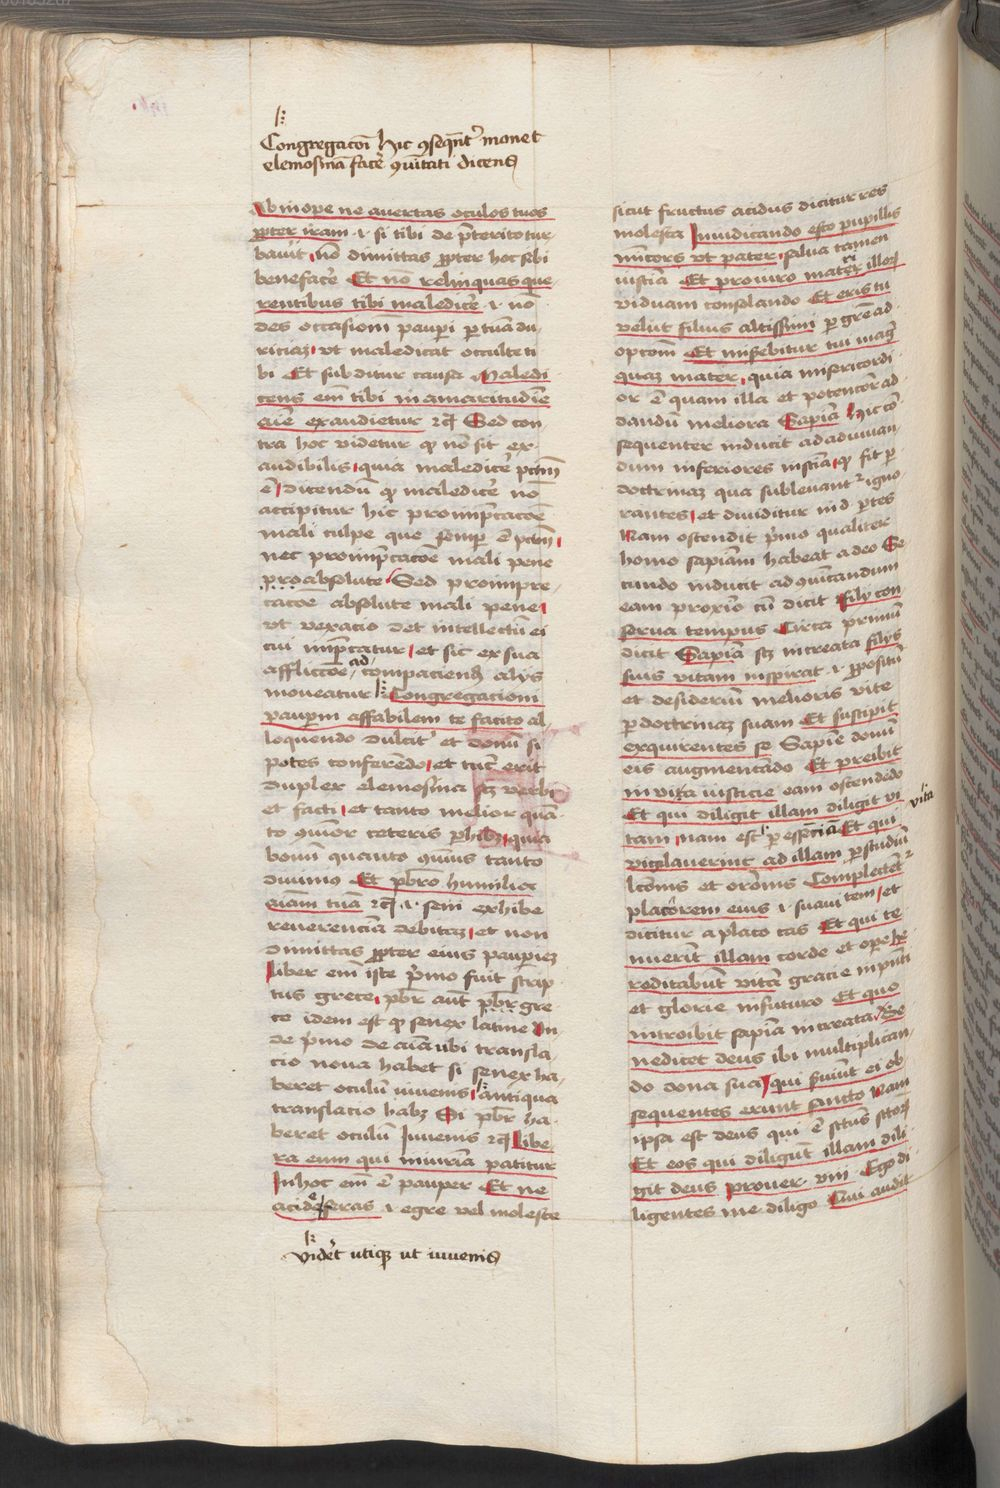 Congregacōi hic ꝯseqn̄t᷑ monet
elemosinā facē ꝯūitati dicens
Ab inope ne avertas oculos tuos
ꝓpter iram .i. si tibi de p̄terito tur
bavit, nō dimittas ꝓpter hoc sibi
benefacē Et nō relinquas que
rentibus tibi maledicē .i. nō
des occasionē pauꝑi ꝑ tuā du
riciaꝫ, ut maledicat occulte ti
bi Et subditur causa Maledi
cens em̄ tibi in amaritudīe
aīe exaudietur ⁊cꝭ Sed con
tra hoc videtur ꝙ nō sit ex
audibilis, quia maledicē pctm̄
ē, dicendū ꝙ maledicē nō
accipitur hic pro imp̄cacōe
mali culpe que semꝑ ē pctm̄,
nec pro imp̄cacōe mali pene
pro absolute Sed pro impre
cacōe absolute mali pene,
ut vexacio det intellectū ei
cui imp̄catur, et sic ex sua
affliccōe ad compaciendꝫ aliis
moveatur Congregacioni
pauꝑum affabilem te facito al
loquendo dulcit᷑ et donū si
potes conferēdo, et tūc erit
duplex elemosina scꝫ verbi
et facti, et tanto melior quā
to ꝯ̄ior ceteris ꝑhibꝫ, quia
bonū quanto ꝯ̄ius tanto
divinius Et p̄bro humilia
aīam tuā ⁊cꝭ .i. seni exhibe
reverenciā debitaꝫ, et non
dimittas ꝓpter eius pauꝑieꝫ
Liber em̄ iste p̄mo fuit scrip
tus grece, pb̄r aut̄ pb̄r gre
ce idem est ꝙ senex latine Un
de p̄mo de aīa ubi transla
cio nova habet si senex ha
beret oculū iuvenis, antiqua
translacio habꝫ Si pb̄r ha
beret oculū Iuvenis ⁊cꝭ Libe
ra eum qui iniuriā patitur
In hoc em̄ ē pauper Et ne
acide feras .i. egre vel moleste
vidēt utiqꝫ ut iuvenis
sicut fructus acidus dicitur res
molesta In iudicando esto pupillis
mi͞cors ut pater, salva tamen
iusticiā Et pro viro matr̄i illoꝝ
viduam consolando Et eris tu
velut filius altissimi ꝑ grē ad
opcōm Et miserebitur tui mag̕
quaꝫ mater, quia misericordi
or ē quam illa et potencior ad
dandū meliora Sapiā hic cō
sequenter inducit ad adiuvan
dum inferiores in sciā, ꝙ fit ꝑ
doctrinaꝫ qua sublevant᷑ igno
rantes, et dividitur in d ꝑtes
Nam ostendit p̄mo qualiter
homo sapiām habeat a deo Se
cundo inducit ad ꝯūicandum
eam proxīo cū dicit Fily con
serva tempus Circa primū
dicit Sapiā scꝫ increata filys
suis vitam inspirat .i. ꝓpositū
et desideriū melioris vite
ꝑ doctrinaꝫ suam Et suscipit
exquirentes se Sapiē donū
eis augmentādo Et preibit
in via iusticie eam ostendēdo
Et qui diligit illam diligit vi
vita
tam, nam est ꝑ essenciā Et qui
vigilaverint ad illam ꝑ studiū
lcōnis et orōnis Complectēt᷑
placōrem eius .i. suavitem, et
dicitur a placo cas Et qui te
nuerīt illam corde et opere he
reditabūt vitā gracie in pn̄ti
et glorie in futuro Et quo
introibit sapiā increata, Be
nedicet deus ibi multiplican
do dona sua, qui ẜviūt ei ob
sequentes erunt sancto Nam
ipsa est deus qui ē sctūs sctoꝝ
Et eos qui diligūt illam dili
git deus prover. viii. Ego di
ligentes me diligo Qui audit